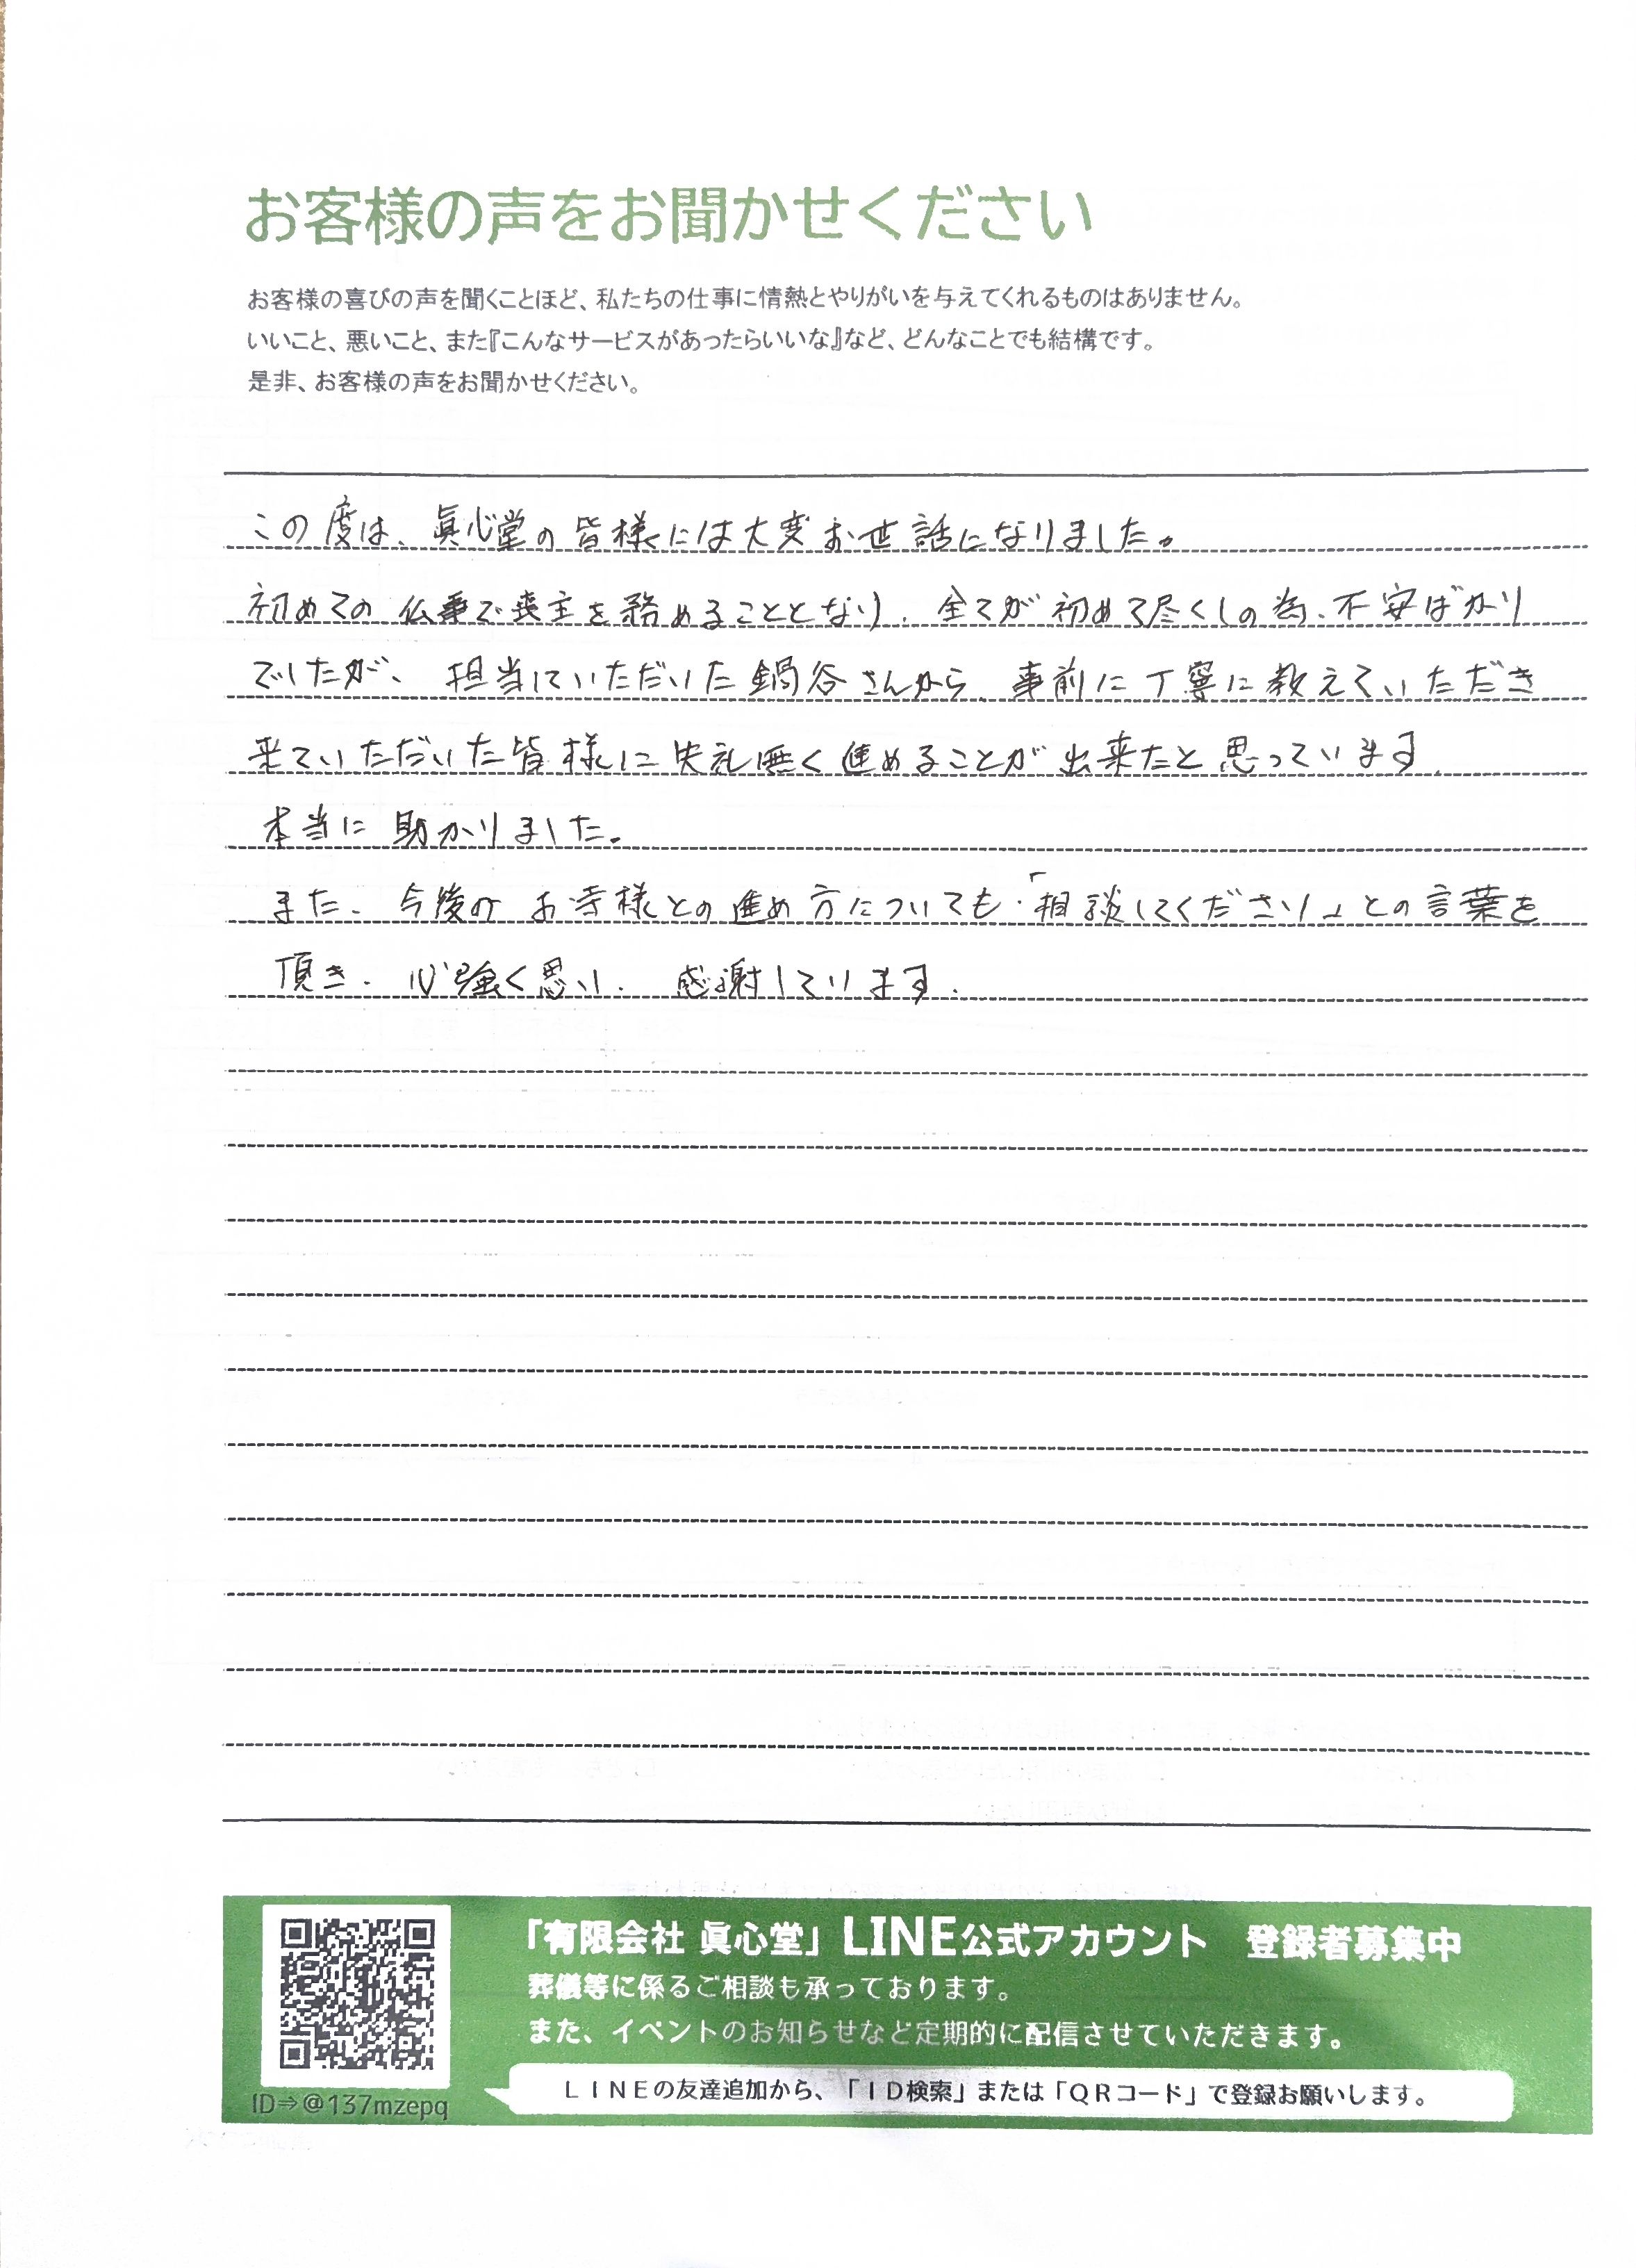 お客様の声をお聞かせください
お客様の喜びの声を聞くことほど、私たちの仕事に情熱とやりがいを与えてくれるものはありません。
いいこと、悪いこと、また『こんなサービスがあったらいいな』など、どんなことでも結構です。
是非、お客様の声をお聞かせください。
この度は、眞心堂の皆様には大変お世話になりました。
初めての仏事で喪主を務めることとなり、全てが初めて尽くしの為、不安ばかり
でしたが、担当していただいた鍋谷さんから、事前に丁寧に教えていただき
来ていただいた皆様に失礼無く進めることが出来たと思っています。
本当に助かりました。
また、今後のお寺様との進め方についても、「相談してください」との言葉を
頂き、心強く思い、感謝しています。
「有限会社 眞心堂」LINE公式アカウント 登録者募集中
葬儀等に係るご相談も承っております。
また、イベントのお知らせなど定期的に配信させていただきます。
LINEの友達追加から、「ID検索」または「QRコード」で登録お願いします。
ID⇒@137mzepq